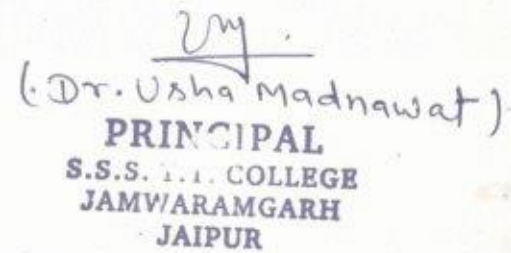 (Dr. Usha Madnawat)
PRINCIPAL
S.S.S. T.T. COLLEGE
JAMWARAMGARH
JAIPUR